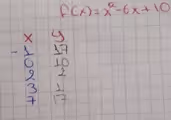 f(x)=x²-6x+10
x y
-1 17
0 10
2 2
3 1
7 17